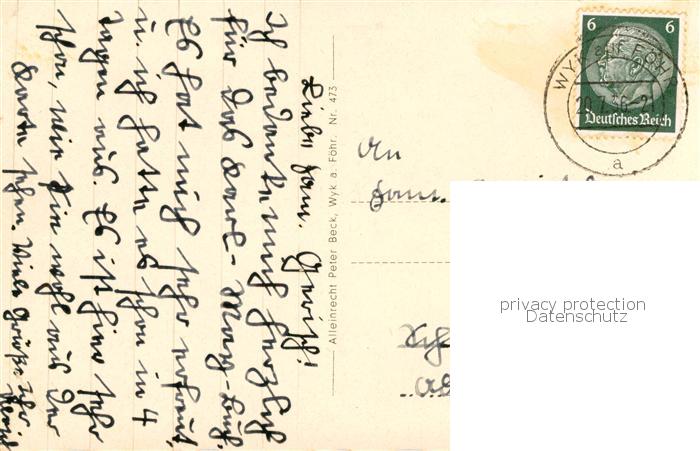 Liebe Fam. Gerisch!
Ich bedanke mich herzlich
für das Karl-May-Buch.
Es hat mich sehr erfreut,
u. ich hatte es schon in 4
Tagen aus. Es ist hier sehr
schön, wie Sie wohl aus der
Karte sehen. Viele Grüße Ihr
Alleinrecht Peter Beck, Wyk a. Föhr. Nr. 473
An
Fam.
6 6
Deutsches Reich
WYK auf FÖHR
20.7.36-2
a
privacy protection
Datenschutz